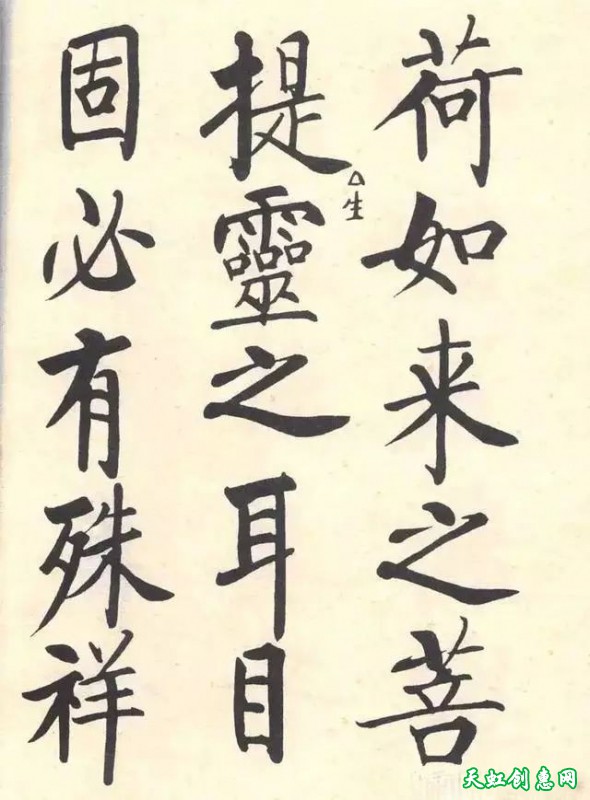 荷如来之菩
提靈之耳目
△生
固必有殊祥
天虹创惠网